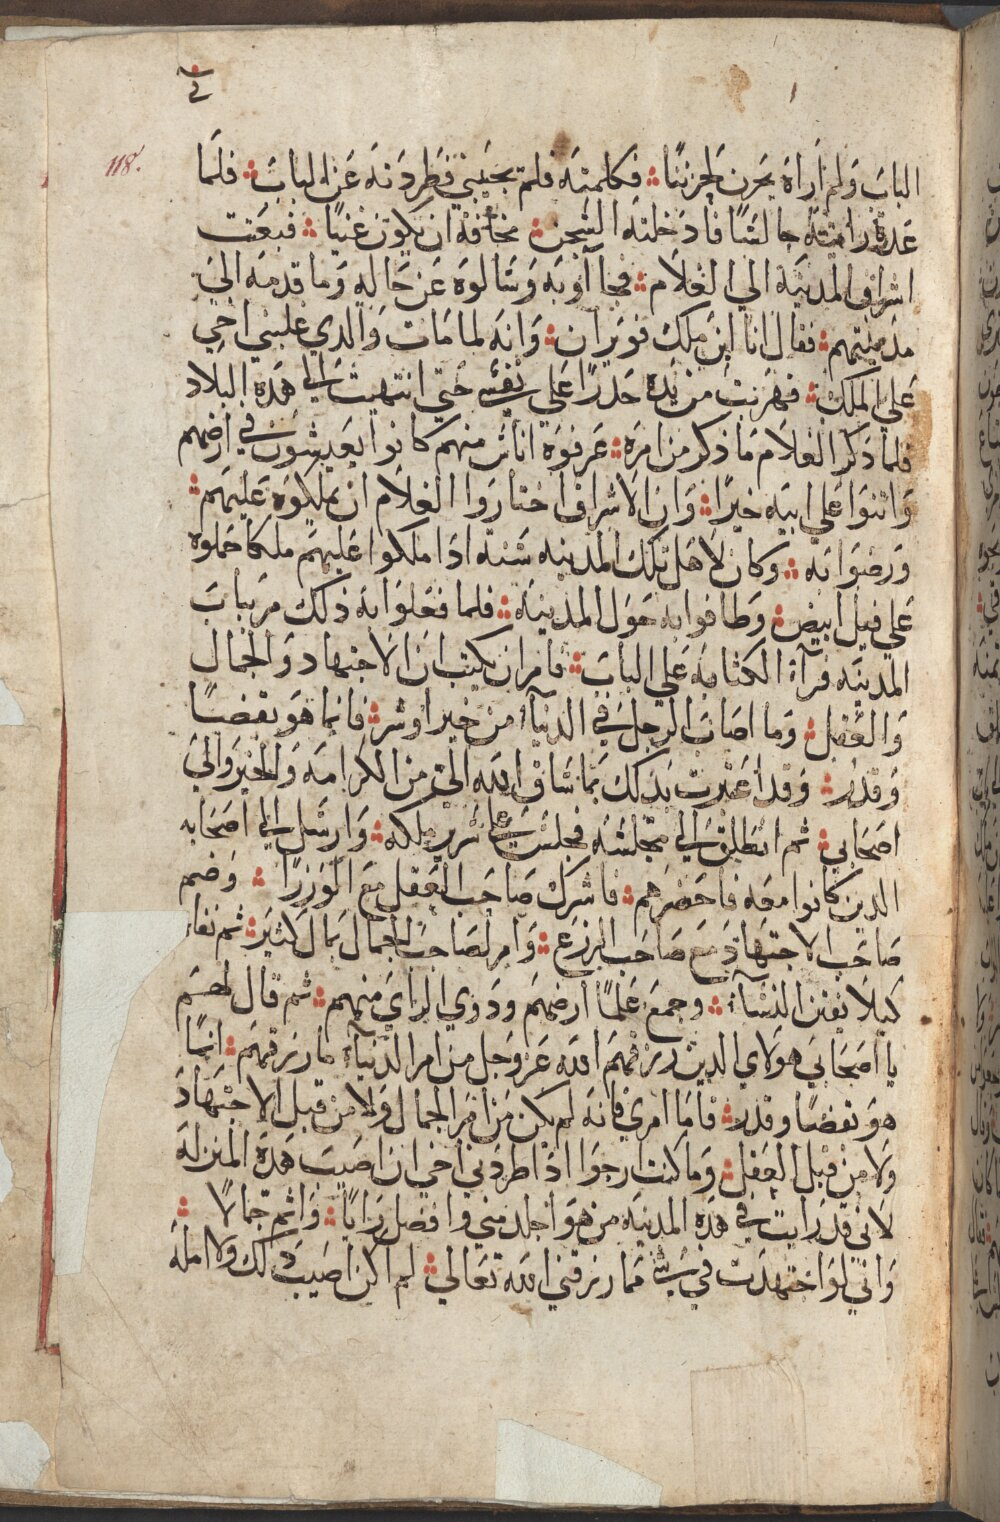 118.
الباب ولم اراه يحزن لحزننا فكلمته فلم يجيبني فطردته عن الباب فلما
عدنا رايته جالسًا فادخلته السجن مخافة ان يكون عنيًا فبعثت
اشراف المدينة الي الغلام فجآ أوبه وسالوه عن حاله وما قدمه الي
مدينتهم فقال انا ابن ملك فويران وانه لما مات والدي غلبني اخي
علي الملك فهربت من يده حدرًا علي نفسي حتي انتهيت الي هده البلاد
فلما دكر الغلام ما ذكر من امره عرفوه اناس منهم كانوا يعيشون في ارضهم
واتنوا علي ابيه خيرًا وان الاشراف اختاروا الغلام ان يملكوه عليهم
ورضوا به وكان لاهل تلك المدينه سنه ادا ملكوا عليهم ملكا حملوه
علي فيل ابيض وطافوا به حول المدينة فلما فعلوا به ذلك مر بباب
المدينه فرآة الكتابه علي الباب فامر ان يكتب ان الاجتهاد والجمال
والعقل وما اصاب الرجل في الدنيآ من خير او شر فانما هو بقضًا
وقدر وقد اعتبرت بدلك بما ساق الله الي من الكرامه والخير والي
اصحابي ثم انطلق الي مجلسه فجلس علي سرير ملكه وارسل الي اصحابه
الدين كانوا معه فاحضرهم فاشرك صاحب العقل مع الوزرا وضم
صاحب الاجتهاد مع صاحب الزرع وامر لصاحب الجمال بمال كثير ثم نفاه
كيلا يفتن النسآ وجمع علمًا ارضهم ودوي الراي منهم ثم قال لهم
يا اصحابي هولاي الدين رزقهم الله عز وجل من امر الدنيآ ما رزقهم انما
هو بقضًا وقدر فاما امري فانه لم يكن من امر الجمال ولا من قبل الاجتهاد
ولا من قبل العقل وما كنت ارجوا اذ اطردني اخي ان اصيب هده المنزله
لاني قد رايت في هده المدينه من هو اجلد مني وافضل رايًا واتم جمالًا
واني لو اجتهدت في شي مما رزقني الله تعالي لم اكن اصيب دلك ولا امله